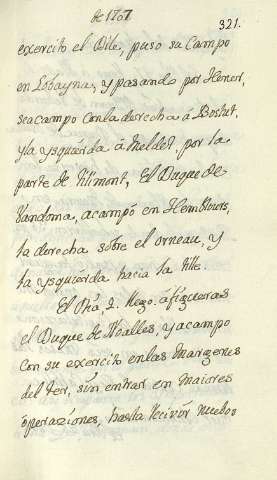 de 1707
321.
exercito el Dile, puso su Campo
en Lobayna, y pasando por Hener,
se acampo con la derecha á Boshut,
y la ysquierda á Meldet, por la
parte de Tilimont, El Duque de
Vandoma, acampó en Hemblours,
la derecha sobre el orneau, y
la ysquierda hacia la Ville.
El Dia, 2. llego á figueras
el Duque de Noalles, y acampo
con su exercito en las margenes
del ter, sin entrar en maiores
operaziones, hasta recivir nuebos